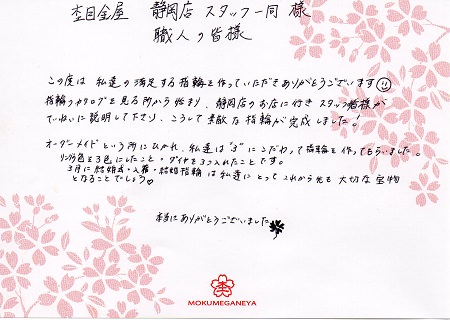 杢目金屋 静岡店 スタッフ一同 様
職人の皆様
この度は 私達の満足する指輪を作っていただきありがとうございます
指輪のカタログを見る所から始まり、静岡店のお店に行き スタッフ皆様が
ていねいに説明して下さり、こうして素敵な指輪が完成しました!
オーダーメイドという所にひかれ、私達は"3"にこだわって指輪を作ってもらいました。
リングの色を3色にしたこと・ダイヤを3つ入れたことです。
3月に結婚式・入籍・結婚指輪は私達にとって これから先も 大切な宝物
となることでしょう♡
本当にありがとうございました
MOKUMEGANEYA